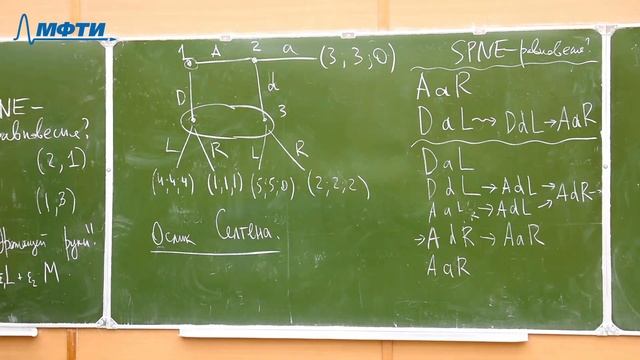 МФТИ
NE-
равновесия?
(2,1)
(1,3)
L + ε₂ M
1 A 2 a (3,3,0)
D d
3
L R L R
(4,4,4) (1,1,1) (5,5,0) (2,2,2)
Ослик Селтена.
SPNE-равновесия?
AaR
DaL ⇝ DdL → AaR
DaL
DdL → AdL → AdR →
AaL → AdL →
→ AdR → AaR
AaR